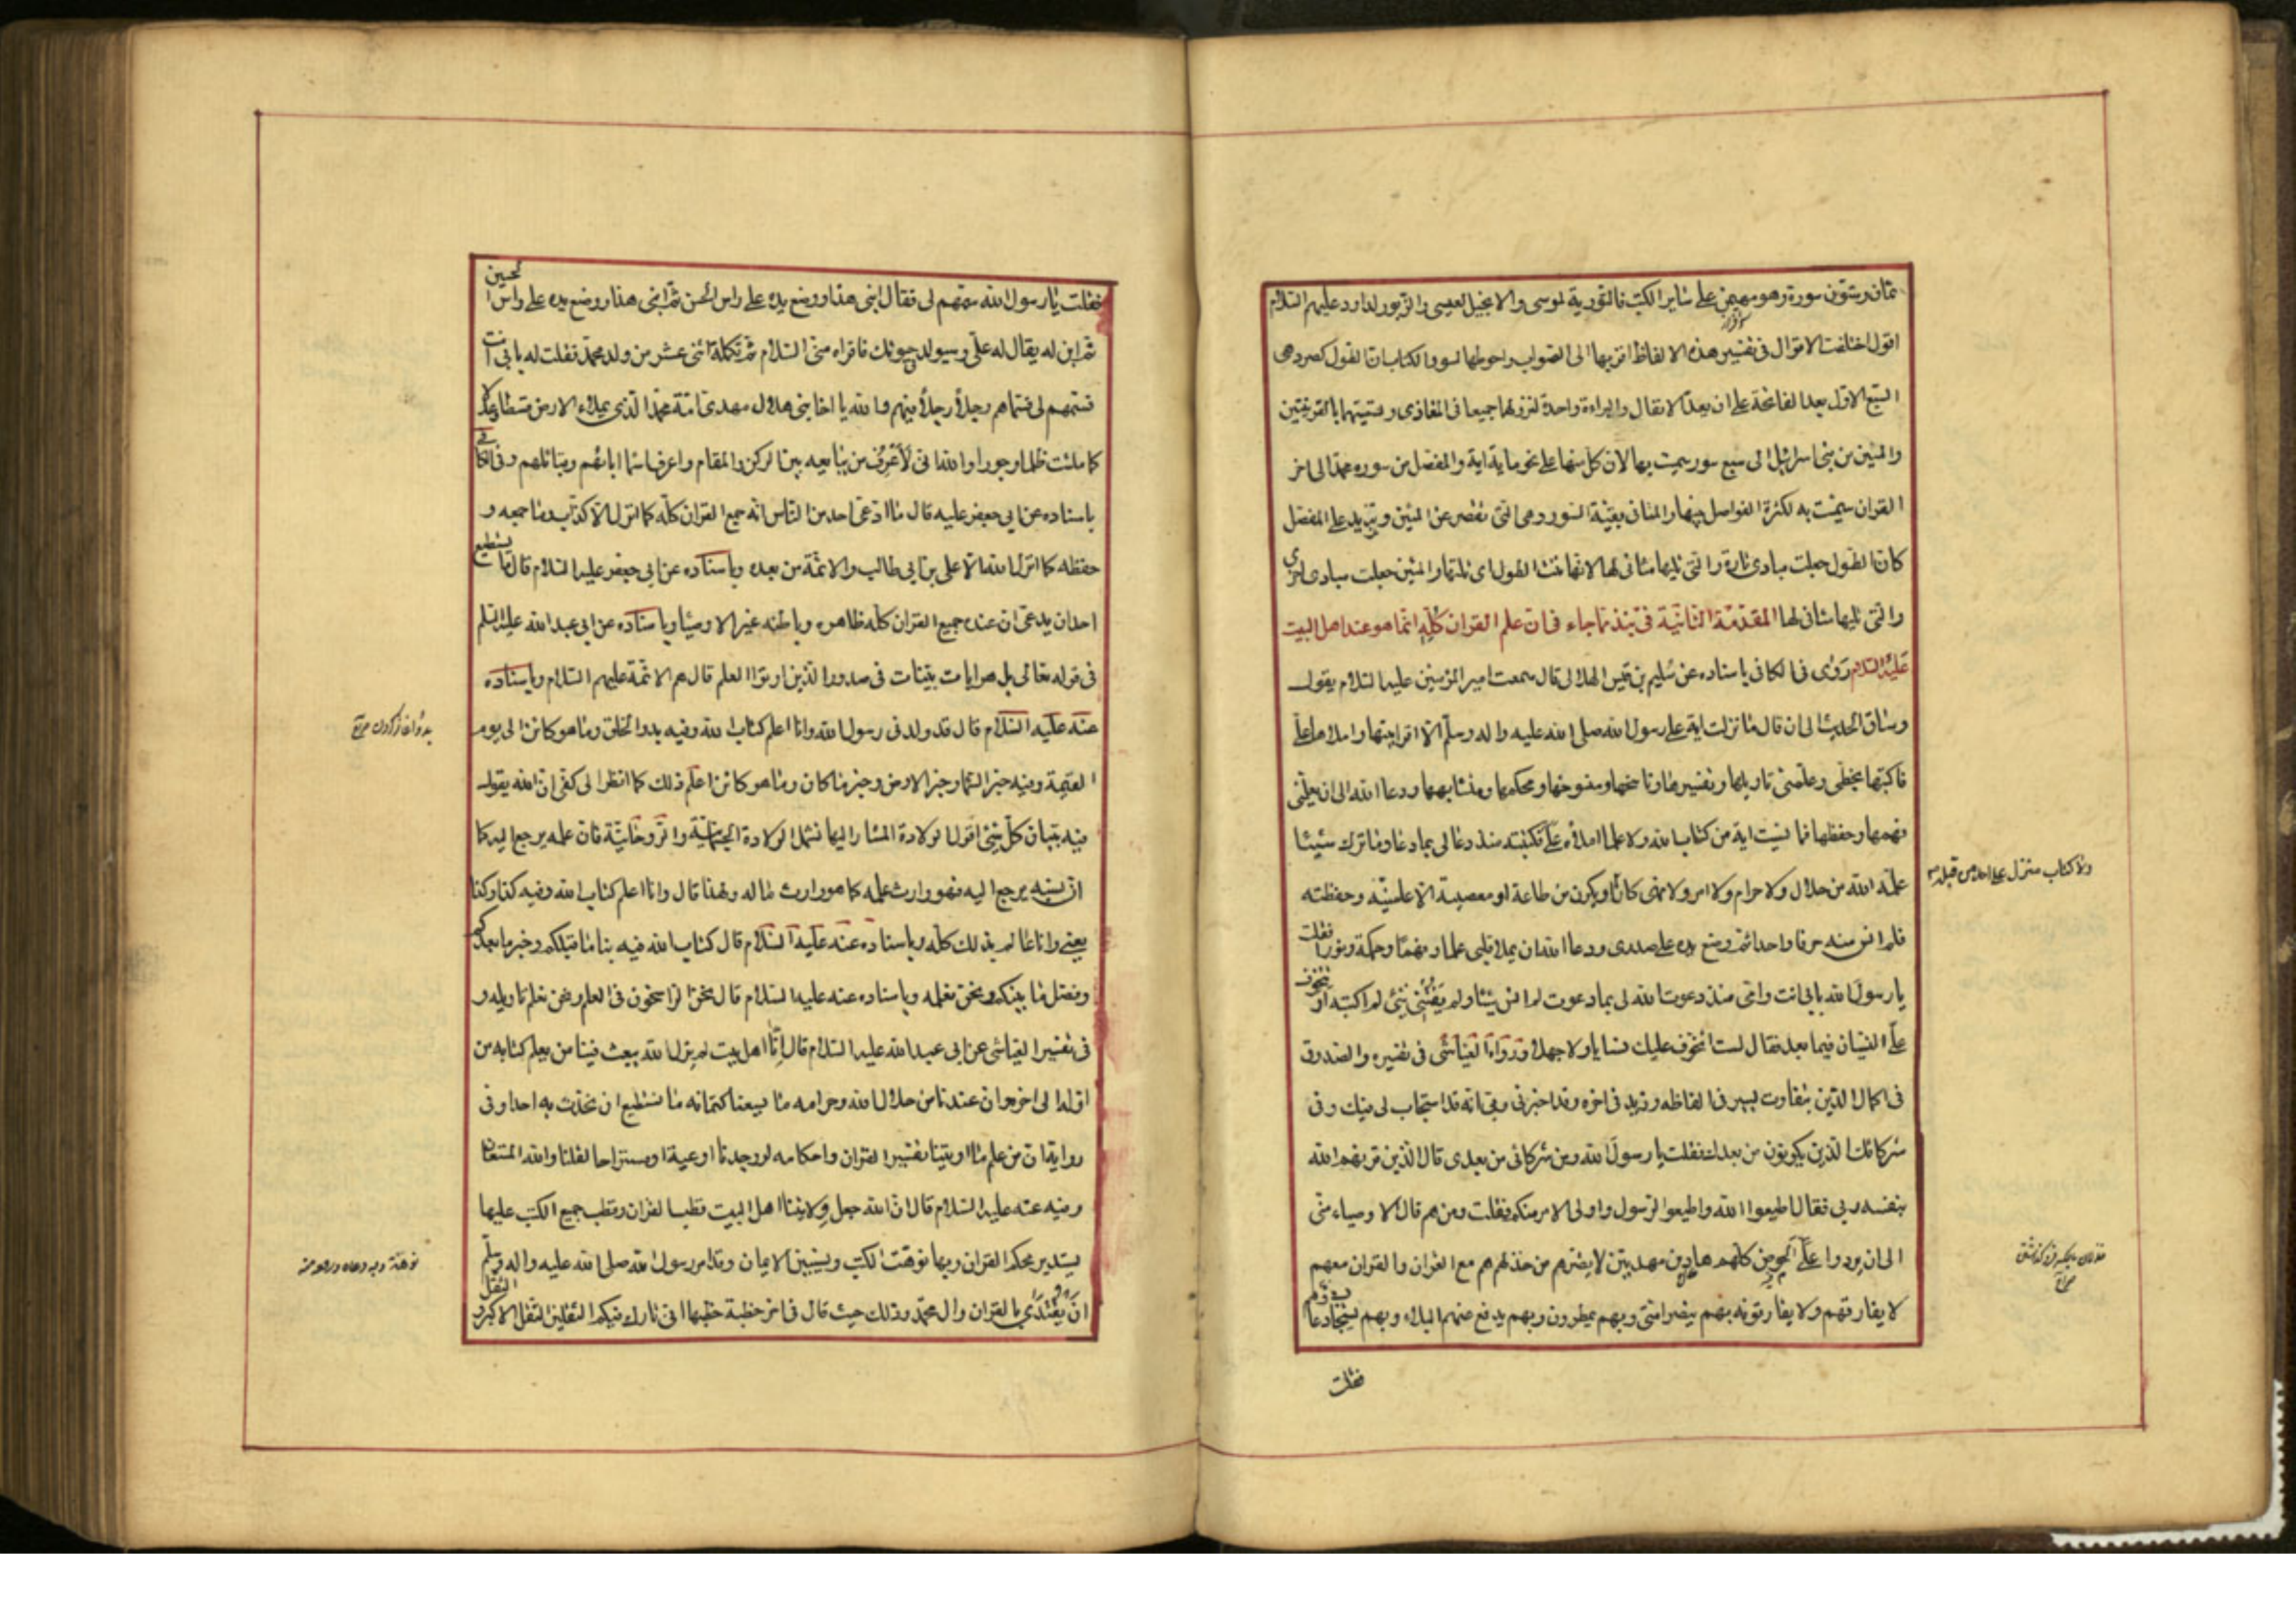 ثمان وستون سورة وهو مهيمن على ساير الكتب فالتورية لموسى والانجيل لعيسى والزبور لداود عليهم السلام
اقول اختلفت الاقوال في تفسير هذه الالفاظ اقربها الى الصواب واحوطها لسور الكتاب ان الطول كصرد هى
السبع الاول بعد الفاتحة على ان يعد الانفال والبراءة واحدة لنزولهما جميعا في المغازى وتسميتهما بالقرينتين
والمئين من بنى اسرائيل الى سبع سور سميت بها لان كل منها على نحو ماية اية والمفصل من سوره محمد الى اخر
القران سميت به لكثرة الفواصل بينها والمثانى بقية السور وهى التى تقصر عن المئين وتزيد على المفصل
كان الطول جعلت مبادى تارة والتى تليها مثانى لها لانها ثنت الطول اى تلتها والمئين جعلت مبادى اخرى
والتى تليها مثانى لها المقدمة الثانية في نبذ مما جاء في ان علم القران كله انما هو عند اهل البيت
عليهم السلام روى في الكافى باسناده عن سليم بن قيس الهلالى قال سمعت امير المؤمنين عليه السلام يقول
وساق الحديث الى ان قال ما نزلت اية على رسول الله صلى الله عليه واله وسلم الا اقرانيها واملاها على
فاكتبها بخطى وعلمنى تاويلها وتفسيرها وناسخها ومنسوخها ومحكمها ومتشابهها ودعا الله الى ان يعلمنى
فهمها وحفظها فما نسيت اية من كتاب الله ولا علما املاه على فكتبته منذ دعا لى بما دعا وما ترك شيئا
علمه الله من حلال ولا حرام ولا امر ولا نهى كان او يكون من طاعة او معصية الا علمنيه وحفظته
ولا كتاب منزل على احد من قبله
فلم انس منه حرفا واحدا ثم وضع يده على صدرى ودعا الله ان يملا قلبى علما وفهما وحكمة ونورا فقلت
يا رسول الله بابى انت وامى منذ دعوت الله لى بما دعوت لم انس شيئا ولم يفتنى شئ لم اكتبه او تتخوف
على النسيان فيما بعد فقال لست اتخوف عليك نسيانا ولا جهلا ورواه العياشى في تفسيره والصدوق
في اكمال الدين بتفاوت يسير في الفاظه وزيد في اخره وقد اخبرنى ربى انه قد استجاب لى فيك وفى
شركائك الذين يكونون من بعدك فقلت يا رسول الله ومن شركائى من بعدى قال الذين قرنهم الله
بنفسه وبى فقال اطيعوا الله واطيعوا الرسول واولى الامر منكم فقلت ومن هم قال الاوصياء منى
الى ان يردوا على الحوض كلهم هادين مهديين لا يضرهم من خذلهم هم مع القران والقران معهم
لا يفارقهم ولا يفارقونه بهم ينصر امتى وبهم يمطرون وبهم يدفع عنهم البلاء وبهم يستجاب دعاؤهم
فقلت
فقلت يا رسول الله سمهم لى فقال ابنى هذا ووضع يده على راس الحسن ثم ابنى هذا ووضع يده على راس الحسين
ثم ابن له يقال له على وسيولد في حيوتك فاقراه منى السلام ثم تكملة اثنى عشر من ولد محمد فقلت له بابى انت
فسمهم لى فسماهم رجلا رجلا فيهم والله يا اخا بنى هلال مهدى امة محمد الذى يملاء الارض قسطا وعدلا
كما ملئت ظلما وجورا والله انى لأعرف من يبايعه بين الركن والمقام واعرف اسما ابائهم وقبائلهم وفى الكافى
باسناده عن ابى جعفر عليه قال ما ادعى احد من الناس انه جمع القران كله كما انزل الا كذاب وما جمعه و
حفظه كما انزل الله الا على بن ابى طالب والائمة من بعده وباسناده عن ابى جعفر عليه السلام قال ما يستطيع
احد ان يدعى ان عنده جميع القران كله ظاهره وباطنه غير الاوصيا وباسناده عن ابى عبد الله عليه السلم
في قوله تعالى بل هو ايات بينات في صدور الذين اوتوا العلم قال هم الائمة عليهم السلام وباسناده
عنه عليه السلام قال قد ولدنى رسول الله وانا اعلم كتاب الله وفيه بدو الخلق وما هو كائن الى يوم
القيمة وفيه خبر السما وخبر الارض وخبر ما كان وما هو كائن اعلم ذلك كما انظر الى كفى ان الله يقول
فيه تبيان كل شئ اقول الولادة المشار اليها تشمل الولادة الجسمانية والروحانية فان علمه يرجع اليه كما
ان نسبه يرجع اليه فهو وارث علمه كما هو وارث ماله ولهذا قال وانا اعلم كتاب الله وفيه كذا وكذا
يعنى وانا عالم بذلك كله وباسناده عنه عليه السلام قال كتاب الله فيه نبا ما قبلكم وخبر ما بعدكم
وفصل ما بينكم ونحن نعلمه وباسناده عنه عليه السلام قال نحن الراسخون في العلم ونحن نعلم تاويله و
في تفسير العياشى عن ابى عبد الله عليه السلام قال إنا اهل بيت لم يزل الله يبعث فينا من يعلم كتابه من
اوله الى اخره وان عندنا من حلال الله وحرامه ما يسعنا كتمانه ما نستطيع ان نحدث به احدا وفى
رواية ان من علم ما اوتينا تفسير القران واحكامه لو وجدنا اوعية او مستراحا لقلنا والله المستعان
وفيه عنه عليه السلام قال ان الله جعل ولايتنا اهل البيت قطب القران وقطب جميع الكتب عليها
يستدير محكم القران وبها نوهت الكتب ويستبين الايمان وقد امر رسول الله صلى الله عليه واله وسلم
ان يقتدى بالقران وال محمد وذلك حيث قال في اخر خطبة خطبها انى تارك فيكم الثقلين الثقل الاكبر والثقل